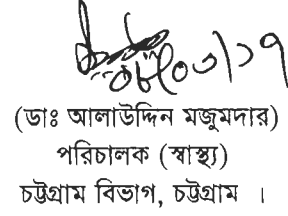 ০৮/০৩/১৭
(ডাঃ আলাউদ্দিন মজুমদার)
পরিচালক (স্বাস্থ্য)
চট্টগ্রাম বিভাগ, চট্টগ্রাম ।